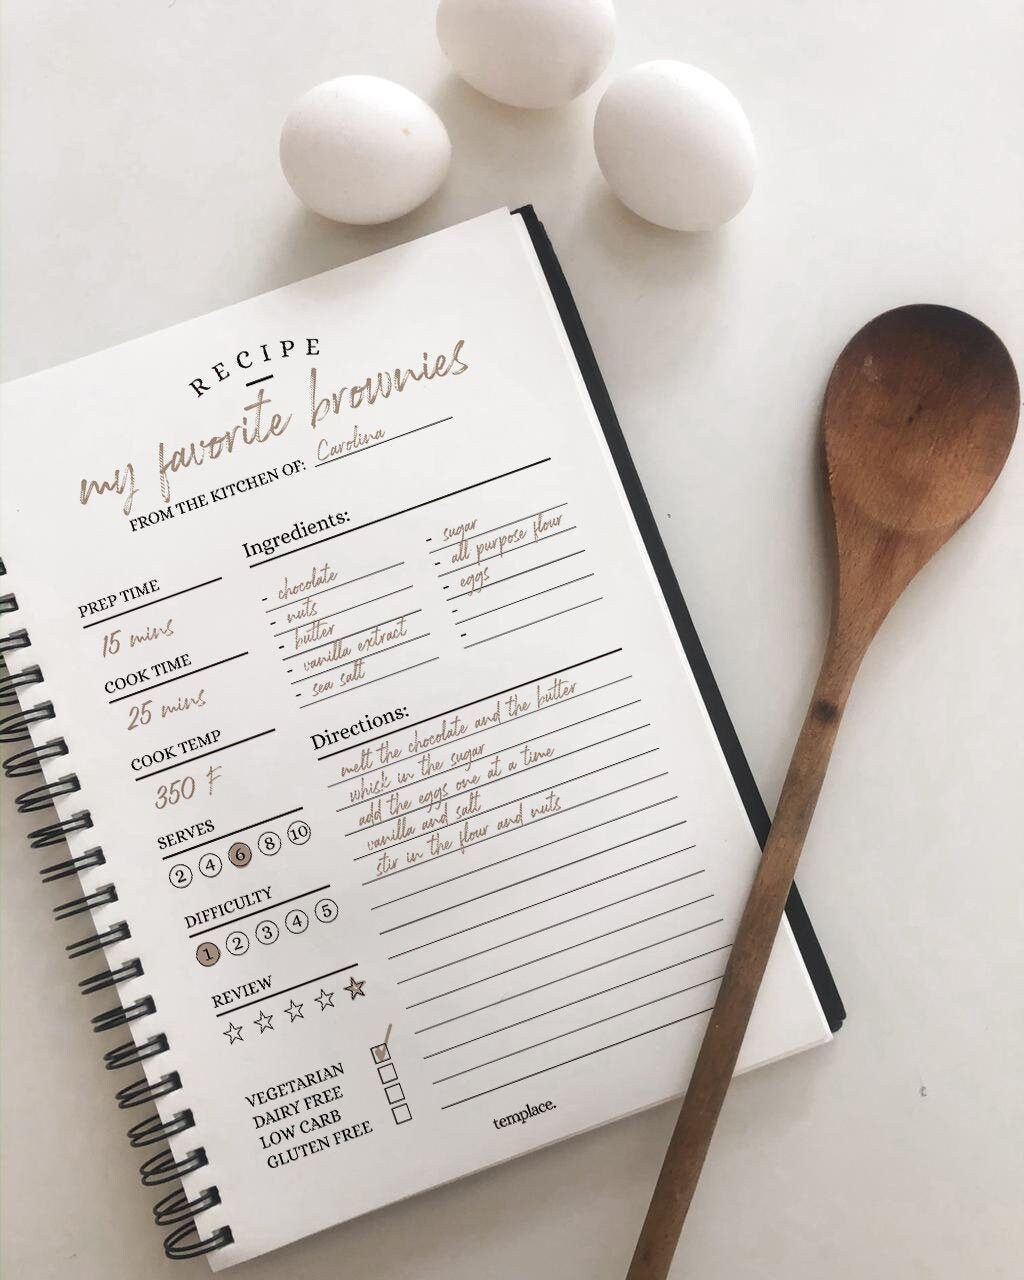 RECIPE
my favorite brownies
FROM THE KITCHEN OF: Carolina
PREP TIME
15 mins
COOK TIME
25 mins
COOK TEMP
350 F
SERVES
2 4 6 8 10
DIFFICULTY
1 2 3 4 5
REVIEW
VEGETARIAN
DAIRY FREE
LOW CARB
GLUTEN FREE
Ingredients:
- chocolate
- nuts
- butter
- vanilla extract
- sea salt
- sugar
- all purpose flour
- eggs
-
-
Directions:
melt the chocolate and the butter
whisk in the sugar
add the eggs one at a time
vanilla and salt
stir in the flour and nuts
templace.